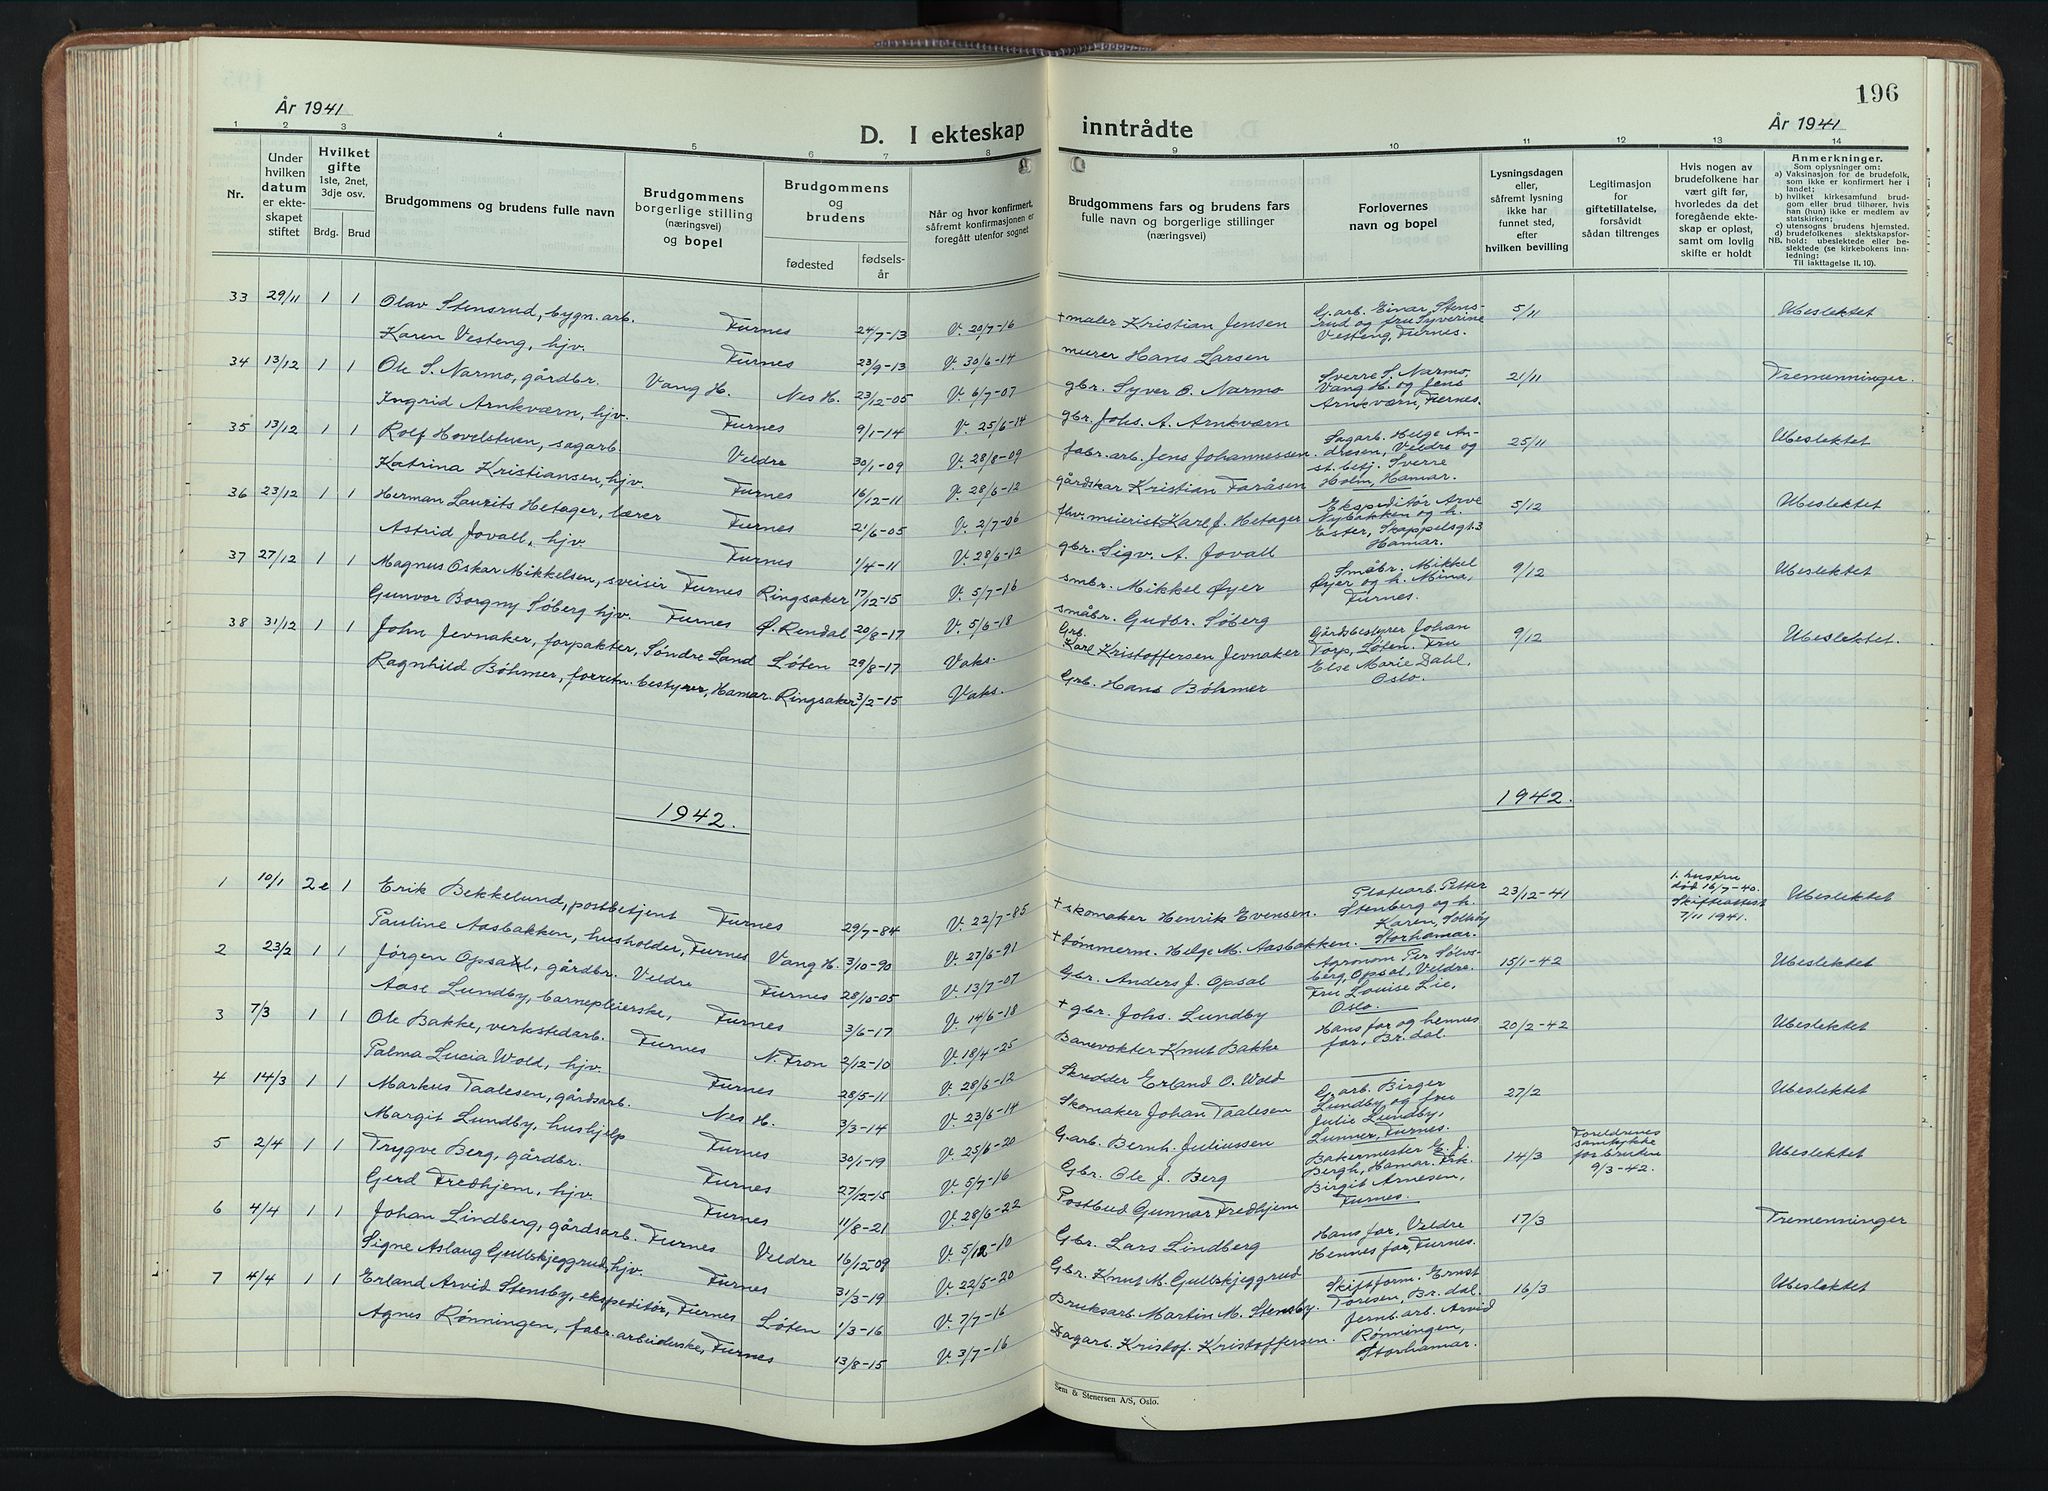 196
År 1941
D. I ekteskap inntrådte
År 1941
1 2 3 4 5 6 7 8 9 10 11 12 13 14
Nr.
Under hvilken datum er ekteskapet stiftet
Hvilket gifte 1ste, 2net, 3dje osv.
Brdg. Brud
Brudgommens og brudens fulle navn
Brudgommens borgerlige stilling (næringsvei) og bopel
Brudgommens og brudens
fødested
fødselsår
Når og hvor konfirmert, såfremt konfirmasjonen er foregått utenfor sognet
Brudgommens fars og brudens fars fulle navn og borgerlige stillinger (næringsvei)
Forlovernes navn og bopel
Lysningsdagen eller, såfremt lysning ikke har funnet sted, efter hvilken bevilling
Legitimasjon for giftetillatelse, forsåvidt sådan tiltrenges
Hvis nogen av brudefolkene har vært gift før, hvorledes da det foregående ekteskap er opløst, samt om lovlig skifte er holdt
Anmerkninger.
Som oplysninger om:
a) Vaksinasjon for de brudefolk, som ikke er konfirmert her i landet;
b) hvilket kirkesamfund brudgom eller brud tilhører, hvis han (hun) ikke er medlem av statskirken;
c) utensogns brudens hjemsted.
d) brudefolkenes slektskapsforhold: ubeslektede eller beslektede (se kirkebokens innledning:
NB. Til iakttagelse II. 10).
33 29/11 1 1 Olav Stensrud, bygn. arb. Furnes 24/7-13 V. 20/7-16 + maler Kristian Jensen G.arb. Einar Stensrud og fru Syverine Vesteng, Furnes. 5/11 Ubeslektet
Karen Vesteng, hjv. Furnes 23/9-13 V. 30/6-14 murer Hans Larsen
34 13/12 1 1 Ole S. Narmo, gårdbr. Vang H. Nes H. 23/12-05 V. 6/7-07 gbr. Syver O. Narmo Sverre S. Narmo, Vang H. og Jens Arnkværn, Furnes. 21/11 Tremenninger.
Ingrid Arnkværn, hjv. Furnes 9/1-14 V. 25/6-14 gbr. Johs. A. Arnkværn
35 13/12 1 1 Rolf Hovelstuen, sagarb. Veldre 30/1-09 V. 28/8-09 fabr. arb. Jens Johannessen. Sagarb. Helge Andresen, Veldre og st. betj. Sverre Holm, Hamar. 25/11 Ubeslektet
Katrina Kristiansen, hjv. Furnes 16/12-11 V. 28/6-12 gårdskar Kristian Faråsen
36 23/12 1 1 Herman Laurits Hetager, lærer Furnes 21/6-05 V. 2/7-06 fhv. meierist Karl J. Hetager Ekspeditør Arve Nybakken og h. Ester, Skappelsgt. 3 Hamar. 5/12 Ubeslektet
Astrid Jovall, hjv. Furnes 1/4-11 V. 28/6-12 gbr. Sigv. A. Jovall
37 27/12 1 1 Magnus Oskar Mikkelsen, sveiser Furnes Ringsaker 17/12-15 V. 5/7-16 smbr. Mikkel Øyer Småbr. Mikkel Øyer og h. Mina, Furnes. 9/12 Ubeslektet
Gunvor Borgny Søberg hjv. Furnes Ø. Rendal 20/8-17 V. 5/6-18 småbr. Gudbr. Søberg
38 31/12 1 1 John Jevnaker, forpakter, Søndre Land Løten 29/8-17 Vaks. Grb. Karl Kristoffersen Jevnaker Gårdsbestyrer Johan Torp, Løten. Fru Else Marie Dahl, Oslo. 9/12 Ubeslektet.
Ragnhild Böhmer, forretn. bestyrer, Hamar. Ringsaker 3/2-15 Vaks. Grb. Hans Böhmer
1942. 1942.
1 10/1 2e 1 Erik Bekkelund, postbetjent Furnes 29/7-84 V. 22/7-85 + skomaker Henrik Evensen. Platearb. Petter Stenberg og h. Karen, Solhøy Storhamar. 23/12-41 1. hustru død 16/7-40. Skifteattest 7/11 1941. Ubeslektet
Pauline Aasbakken, husholder, Furnes Vang H. 3/10-90 V. 27/6-91 + tømmerm. Helge M. Aasbakken.
2 23/2 1 1 Jørgen Opsal, gårdbr. Veldre Furnes 28/10-05 V. 13/7-07 Gbr. Anders J. Opsal Agronom Per Sølvsberg, Opsal, Veldre. Fru Louise Lie, Oslo. 15/1-42 Ubeslektet
Aase Lundby, barnepleierske, Furnes 3/6-17 V. 14/6-18 + gbr. Johs. Lundby
3 7/3 1 1 Ole Bakke, verkstedarb. Furnes N. Fron 2/12-10 V. 18/4-25 Banevokter Knut Bakke Hans far og hennes far, Br.dal. 20/2-42 Ubeslektet
Palma Lucia Wold, hjv. Furnes 28/5-11 V. 28/6-12 Skredder Erland O. Wold
4 14/3 1 1 Markus Taalesen, gårdsarb. Nes H. 3/3-14 V. 23/6-14 Skomaker Johan Taalesen G.arb. Birger Lundby og fru Julie Lundby, Lunner, Furnes. 27/2 Ubeslektet
Margit Lundby, hushjelp Furnes 30/1-19 V. 25/6-20 G.arb. Bernh. Juliussen
5 2/4 1 1 Trygve Berg, gårdbr. Furnes 27/12-15 V. 5/7-16 Gbr. Ole J. Berg Bakermester E. J. Bergh, Hamar. Frk. Birgit Arnesen, Furnes. 14/3 Foreldrenes samtykke for bruden 9/3-42. Ubeslektet
Gerd Fredhjem, hjv. Furnes 11/8-21 V. 28/6-22 Postbud Gunnar Fredhjem
6 4/4 1 1 Johan Lindberg, gårdsarb. Furnes Veldre 16/12-09 V. 5/12-10 Gbr. Lars Lindberg Hans far, Veldre Hennes far, Furnes. 17/3 Tremenninger
Signe Aslaug Gullskjeggrud, hjv. Furnes 31/3-19 V. 22/5-20 Gbr. Knut M. Gullskjeggrud
7 4/4 1 1 Erland Arvid Stensby, ekspeditør, Furnes Løten 1/3-16 V. 7/7-16 Bruksarb. Martin M. Stensby. Skiftform. Ernst Toresen, Br.dal. Jernb. arb. Arvid Rønningen, Storhamar. 16/3 Ubeslektet
Agnes Rønningen, fabr. arbeiderske, Furnes 13/8-15 V. 3/7-16 Dagarb. Kristof. Kristoffersen.
Sem & Stenersen A/S, Oslo.